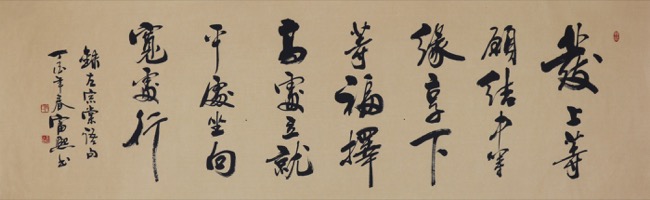 發上等
願結中等
緣享下
等福擇
高處立就
平處坐向
寬處行
錄左宗棠語句
年夏